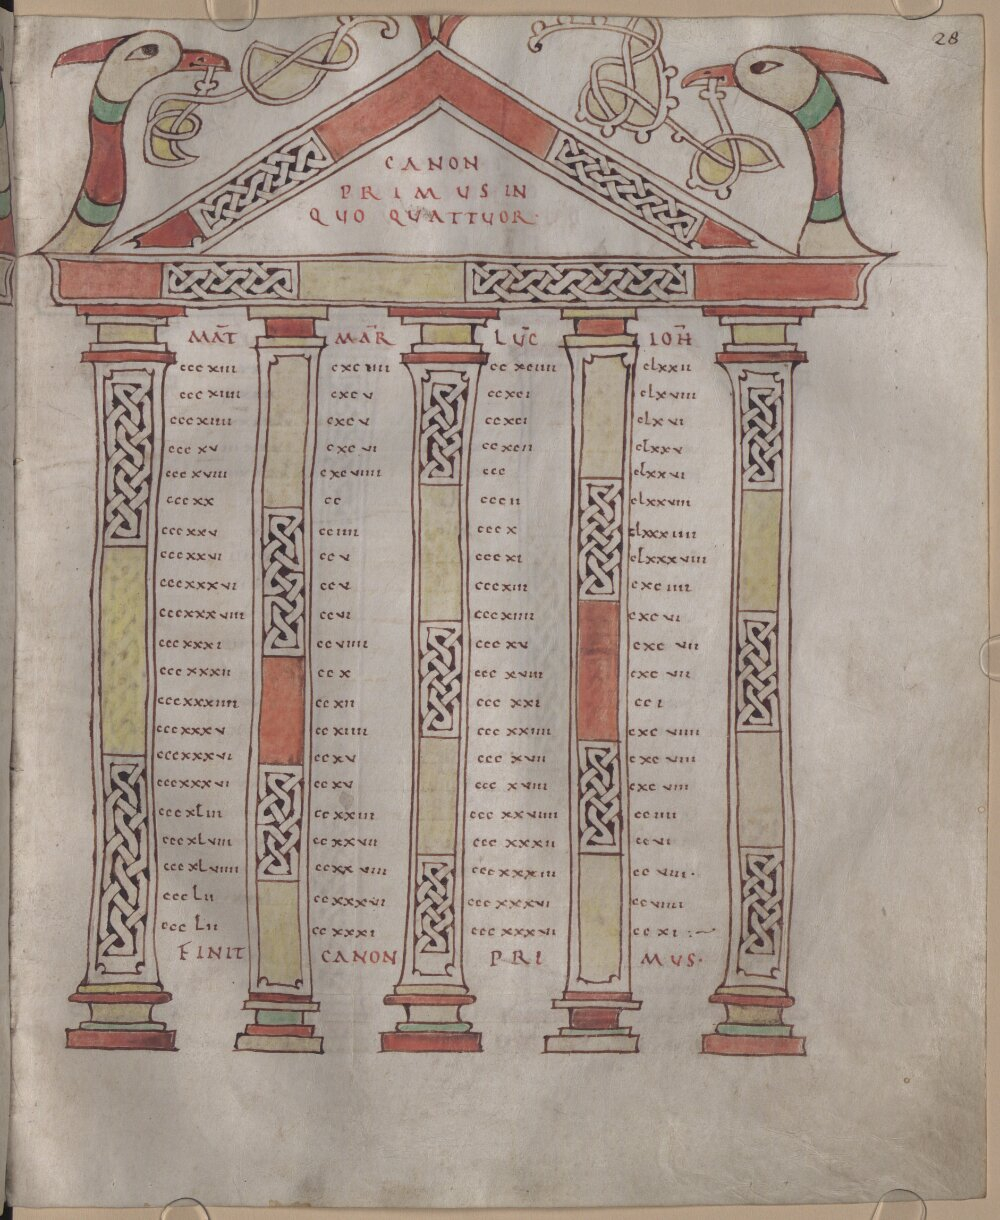 28
CANON
PRIMUS IN
QUO QUATTUOR·
MAT̄ MAR̄ LUC̄ IOH̄
cccxiii cxciiii ccxciiii clxxii
cccxiiii cxcv ccxci clxviii
cccxiiii cxcv ccxci clxvi
cccxv cxcvi ccxcii clxxv
cccxviii cxcviiii ccc clxxvi
cccxx cc cccii clxxviii
cccxxv cciiii cccx clxxxiiii
cccxxvi ccv cccxi clxxxviii
cccxxxvi ccv cccxiii cxciiii
cccxxxviii ccvi cccxiiii cxcvi
cccxxxi ccviiii cccxv cxcvii
cccxxxii ccx cccxviii cxcvii
cccxxxiiii ccxii cccxxi cci
cccxxxv ccxiiii cccxxiiii cxcviiii
cccxxxvi ccxv cccxvii cxcviii
cccxxxvi ccxv cccxviii cxcviii
cccxLiii ccxxiii cccxxviiii cciiii
cccxLviii ccxxvii cccxxxii ccvi
cccxLviiii ccxxviiii cccxxxiii ccviii·
cccLii cccxxxvi ccviiii
cccLii ccxxxi cccxxxvi ccxi
FINIT CANON PRI MUS·